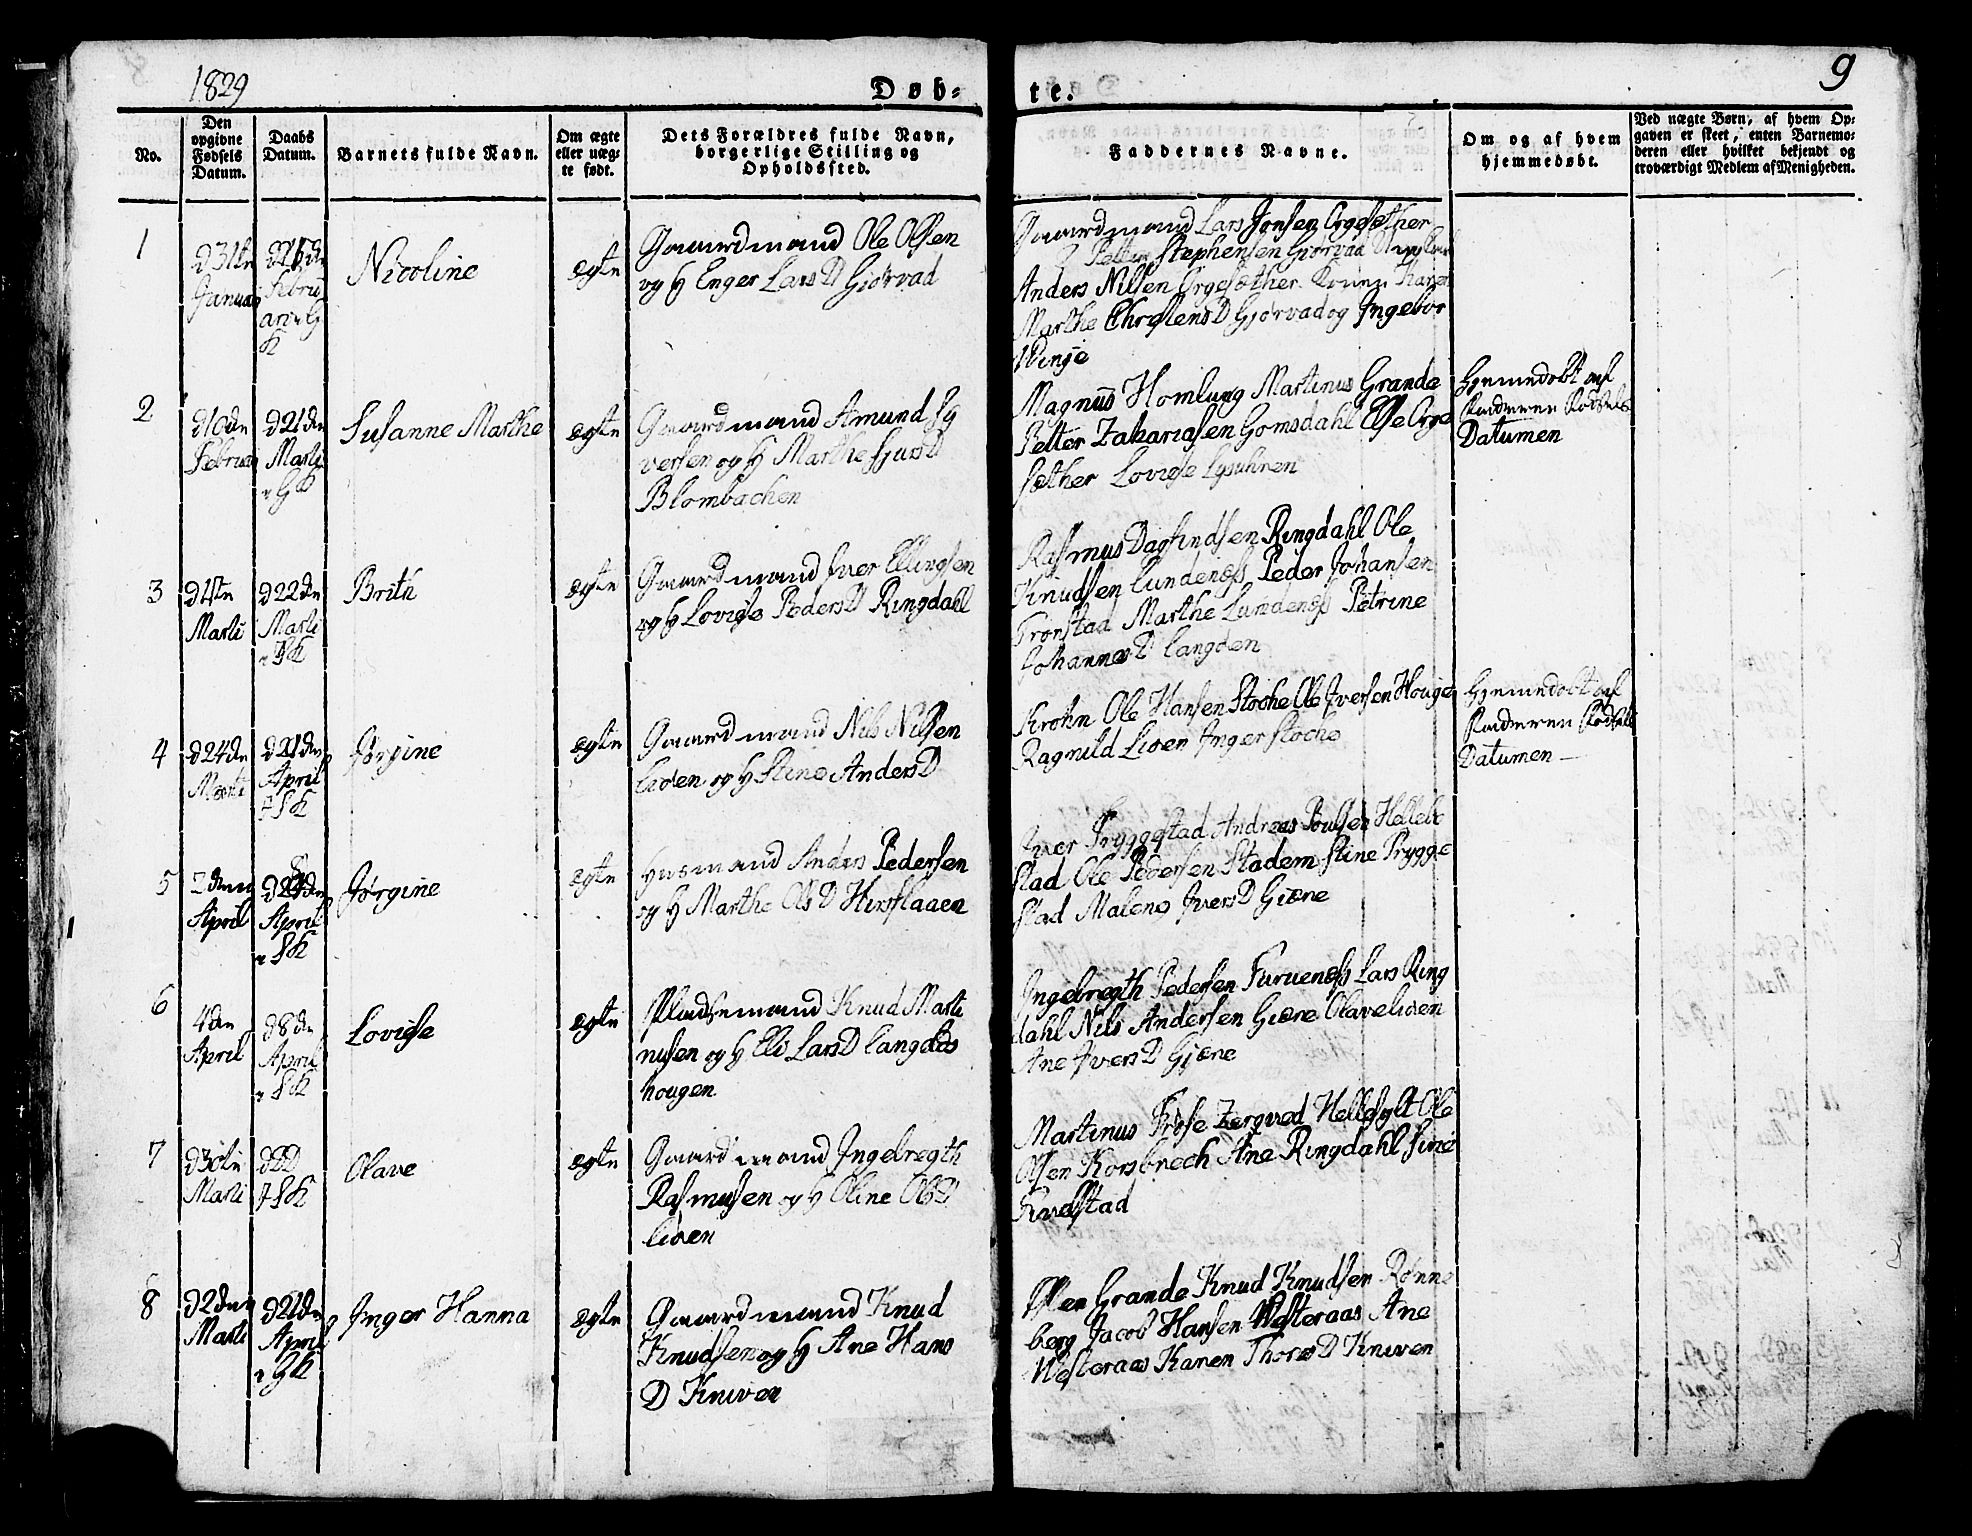 1829
Døb-
te.
9
No.
Den
opgivne
Fødsels
Datum.
Daabs
Datum.
Barnets fulde Navn.
Om ægte
eller uæg-
te født.
Dets Forældres fulde Navn,
borgerlige Stilling og
Opholdssted.
Faddernes Navne.
Om og af hvem
hjemmedøbt.
Ved uægte Børn, af hvem Op-
gaven er skeet, enten Barnemo-
deren eller hvilket bekjendt og
troværdigt Medlem af Menigheden.
1
d 31te
Januar
Febru
Nicoline
ægte
Gaardmand Ole Olsen
og H Enger Lars D Giørvad
Gaardmand Lars Jonsen Ørgesæther
Petter Stephensen Giørvad
Anders Nilsen Ørgesæther
Marthe D Gjørvad og Ingebor
Winje
2
d 10de
Februar
d 21de
Marti
i G K
Susanne Marthe
ægte
Gaardmand Amund Sy
versen og H Marthe Sjurs D
Blombachen
Magnus Homlung Martinus Grande
Petter Zakariasen Gomsdahl Else Ørge
sæther Lovise Lysuhren
Hjemmedøbt af
Faderen Fødsels
Datumen
3
d 1ste
Marti
d 22de
Marti
i S K
Brith
ægte
Gaardmand Iver Ellingsen
og H Lovise Peders D Ringdahl
Rasmus Dagfindsen Ringdahl Ole
Knudsen Lundenæs Peder Johansen
Tronstad Marthe Lundenæs Petrine
Johannes D Langden
4
d 24de
Marti
d 21de
April
i S K
Jørgine
ægte
Gaardmand Nils Nilsen
Lioen og H Stine Anders D
Krohn Ole Hansen Stoche Ole Iversen Houge
Ragnild Lioen Inger Stoche
Hjemmedøbt af
Faderen Fødsels
Datumen
5
2den
April
April
i S K
Jørgine
ægte
Husmand Anders Pedersen
og H Marthe Ols D Hirsflaaen
Iver Tryggestad Andreas Poulsen Hellebo
stad Ole Pedersen Stadem Stine Trygge
stad Malene Ivers D Giære
6
4de
April
d 8de
April
i S K
Lovise
ægte
Pladsemand Knud Marti
nusen og H Eli Lars D Langdals
hougen
Ingebregth Pedersen Furuenæs Lars Ring
dahl Nils Andersen Giære Olave Lioen
Ane Ivers D Gjære
7
d 30te
Marti
d D D
i S K
Olave
ægte
Gaardmand Ingebregth
Rasmusen og H Oline Ols D
Lioen
Martinus Frøse Zergved Hellesylt Ole
Olsen Korsbrech Ane Ringdahl Sine
Tuvestad
8
d 2den
Marti
d 21de
April
i G K
Inger Hanna
ægte
Gaardmand Knud
Knudsen og H Ane Hans
D Kniven
Espen Grande Knud Knudsen Rønne
berg Jacob Hansen Westeraas Ane
Westeraas Karen Thores D Kniven